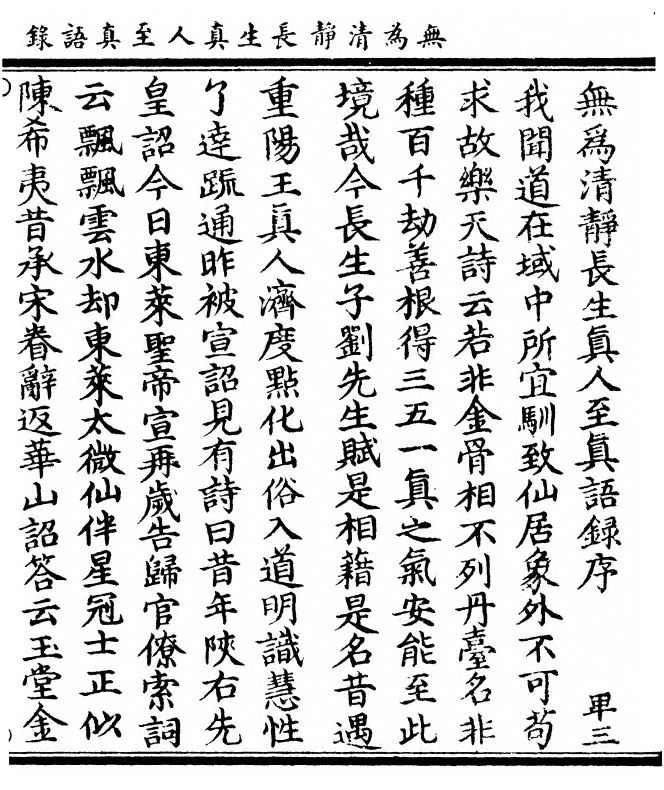 無為清靜長生真人至真語錄
無爲清靜長生眞人至眞語錄序　甲三
我聞道在域中所宜馴致仙居象外不可苟
求故樂天詩云若非金骨相不列丹臺名非
種百千劫善根得三五一眞之氣安能至此
境哉今長生子劉先生賦是相藉是名昔遇
重陽王眞人濟度點化出俗入道明識慧性
了達疏通昨被宣詔見有詩曰昔年陝右先
皇詔今日東萊聖帝宣再歲告歸官僚索詞
云飄飄雲水却東萊太微仙伴星冠士正似
陳希夷昔承宋眷辭返華山詔答云玉堂金